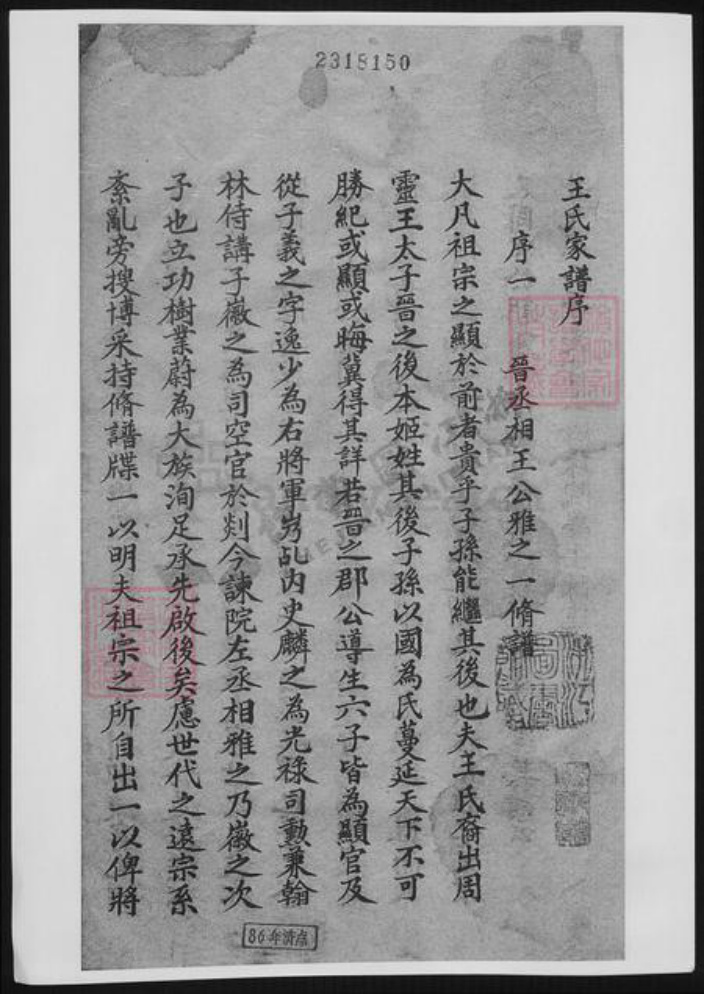 2315150
王氏家譜序
序一 晉丞相王公雅之一脩譜
大凡祖宗之顯於前者貴乎子孫能繼其後也夫王氏裔出周
靈王太子晉之後本姬姓其後子孫以國為氏蔓延天下不可
勝紀或顯或晦冀得其詳若晉之郡公導生六子皆為顯官及
從子義之字逸少為右將軍嵡乩內史麟之為光祿司勳兼翰
林侍講子徽之為司空官於剡今諫院左丞相雅之乃徽之次
子也立功樹業蔚為大族洵足承先啟後矣慮世代之遠宗系
紊亂旁搜博采持脩譜牒一以明夫祖宗之所自出一以俾將
86年清点